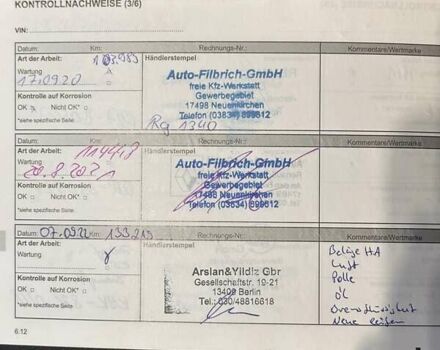 KONTROLLNACHWEISE (3/6)
VIN:
Datum: Km: Rechnungs-Nr.: Kommentare/Wertmarke
Art der Arbeit: Händlerstempel
Wartung
17.09.20
Auto-Filbrich-GmbH
freie Kfz-Werkstatt
Gewerbegebiet
17498 Neuenkirchen
Telefon (03834) 899612
Kontrolle auf Korrosion
OK Nicht OK*
*siehe spezifische Seite
Rg 1340
Datum: Km: 114448 Rechnungs-Nr.: Kommentare/Wertmarke
Art der Arbeit: Händlerstempel
Wartung
20.8.2021
Auto-Filbrich-GmbH
freie Kfz-Werkstatt
Gewerbegebiet
17498 Neuenkirchen
Telefon (03834) 899612
Kontrolle auf Korrosion
OK Nicht OK*
*siehe spezifische Seite
Datum: 07.09.22 Km: 133213 Rechnungs-Nr.: Kommentare/Wertmarke
Art der Arbeit: Händlerstempel
Wartung
Arslan&Yildiz Gbr
Gesellschaftstr.
13409 Berlin
Tel.: 030/48816618
Kontrolle auf Korrosion
OK Nicht OK*
*siehe spezifische Seite
Beläge HA
Luft
Polle
Öl
Bremsflüssigkeit
Neue Reifen
6.12